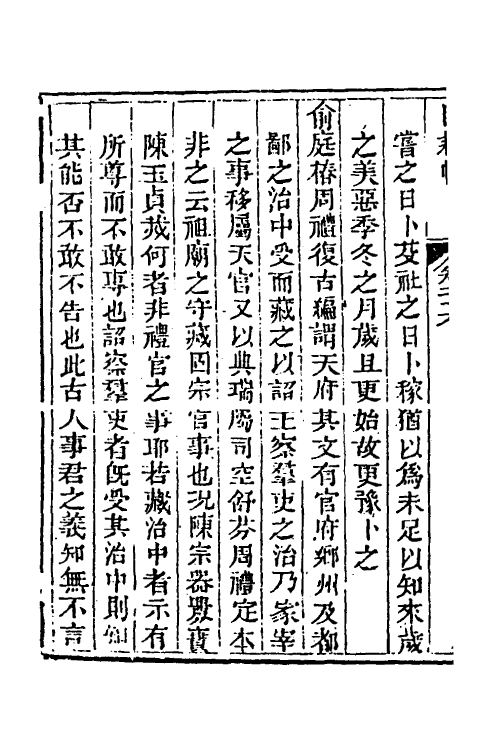 嘗之日卜芟社之日卜稼猶以為未足以知來歲
之美惡季冬之月歲且更始故更豫卜之
俞庭椿周禮復古編謂天府其文有官府鄉州及都
鄙之治中受而藏之以詔王察羣吏之治乃冢宰
之事移屬天官又以典瑞屬司空舒芬周禮定本
非之云祖廟之守藏固宗官事也况陳宗器釁寶
陳玉貞歲何者非禮官之事耶若藏治中者示有
所尊而不敢專也詔察羣吏者旣受其治中則知
其能否不敢不告也此古人事君之義知無不言